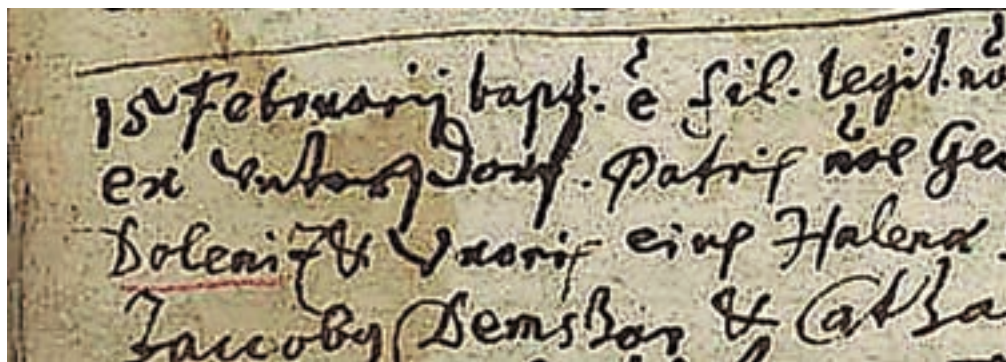 15 Februarij bapt: ẽ fil. legit. nõ
ex Untersdorf. Patris nõe Ge
Doleniz & Uxoris eius Halena
Jacoby Demshar & Catha